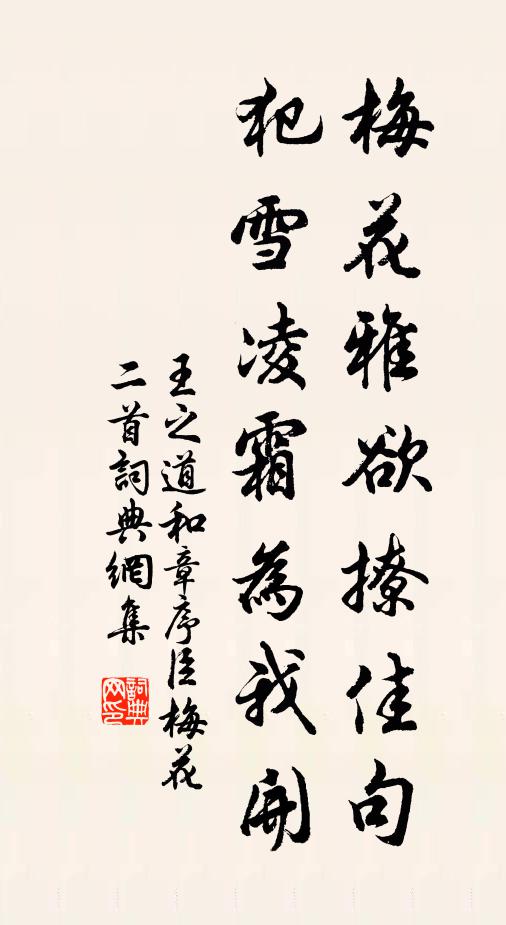 梅花雅欲撩佳句
犯雪凌霜為我開
王之道和章序臣梅花
二首詞典網集
詞典网印